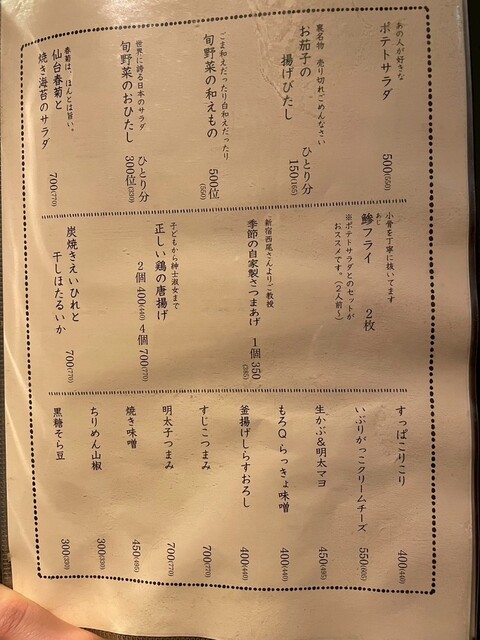 あの人が好きな
ポテトサラダ
500(550)
裏名物 売り切れごめんなさい
お茄子の
揚げびたし
ひとり分
150(165)
ごま和えだったり白和えだったり
旬野菜の和えもの
500位
(550)
世界に誇る日本のサラダ
旬野菜のおひたし
ひとり分
300位(330)
春菊は、ほんとは旨い。
仙台春菊と
焼き海苔のサラダ
700(770)
小骨を丁寧に抜いてます
あじ
鯵フライ 2枚
※ポテトサラダとのセットが
おススメです。(2人前〜)
新宿西尾さんよりご教授
季節の自家製さつまあげ
1個 350
(385)
子どもから紳士淑女まで
正しい鶏の唐揚げ
2個 400(440) 4個 700(770)
炭焼きえいひれと
干しほたるいか
700(770)
すっぱこりこり 400(440)
いぶりがっこクリームチーズ 550(605)
生かぶ&明太マヨ 450(495)
もろQ らっきょ味噌 400(440)
釜揚げしらすおろし 400(440)
すじこつまみ 700(770)
明太子つまみ 700(770)
焼き味噌 450(495)
ちりめん山椒 300(330)
黒糖そら豆 300(330)